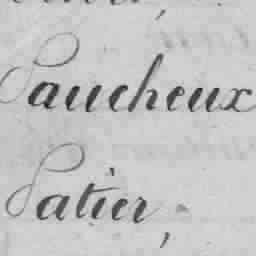 Paucheux
Patier,